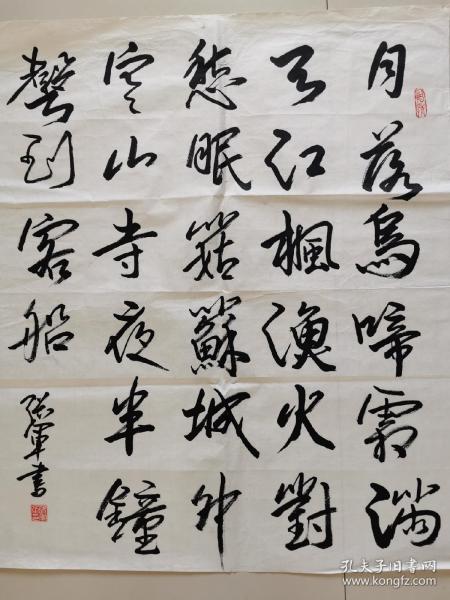 月落烏啼霜滿
天江楓漁火對
愁眠姑蘇城外
寒山寺夜半鐘
聲到客船
張軍書
孔夫子旧书网
www.kongfz.com